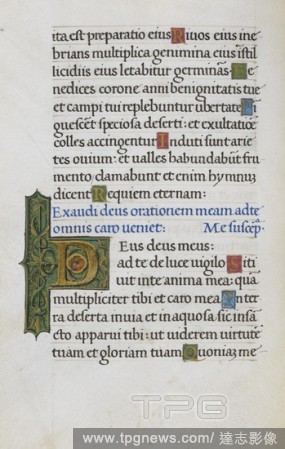 ita est preparatio eius Riuos eius ine
brians multiplica germina eius i stil
licidiis eius letabitur germinãs. Be
nedices corone anni benignitatis tue
et campi tui replebuntur ubertate Pi
guescẽt speciosa deserti: et exultatiõe
colles accingentur Induti sunt arie
tes ouium: et ualles habundabũt fru
mento clamabunt et enim hymnũ
dicent Requiem eternam:
Exaudi deus orationem meam ad te
omnis caro veniet: Me suscep.
Deus deus meus:
ad te de luce vigilo Siti
uit in te anima mea: quã
multipliciter tibi et caro mea In ter
ra deserta inuia et in aquosa sic in sã
cto apparui tibi: ut uiderem uirtutẽ
tuam et gloriam tuam Quoniaz me
TPG
www.tpgnews.com / 達志影像